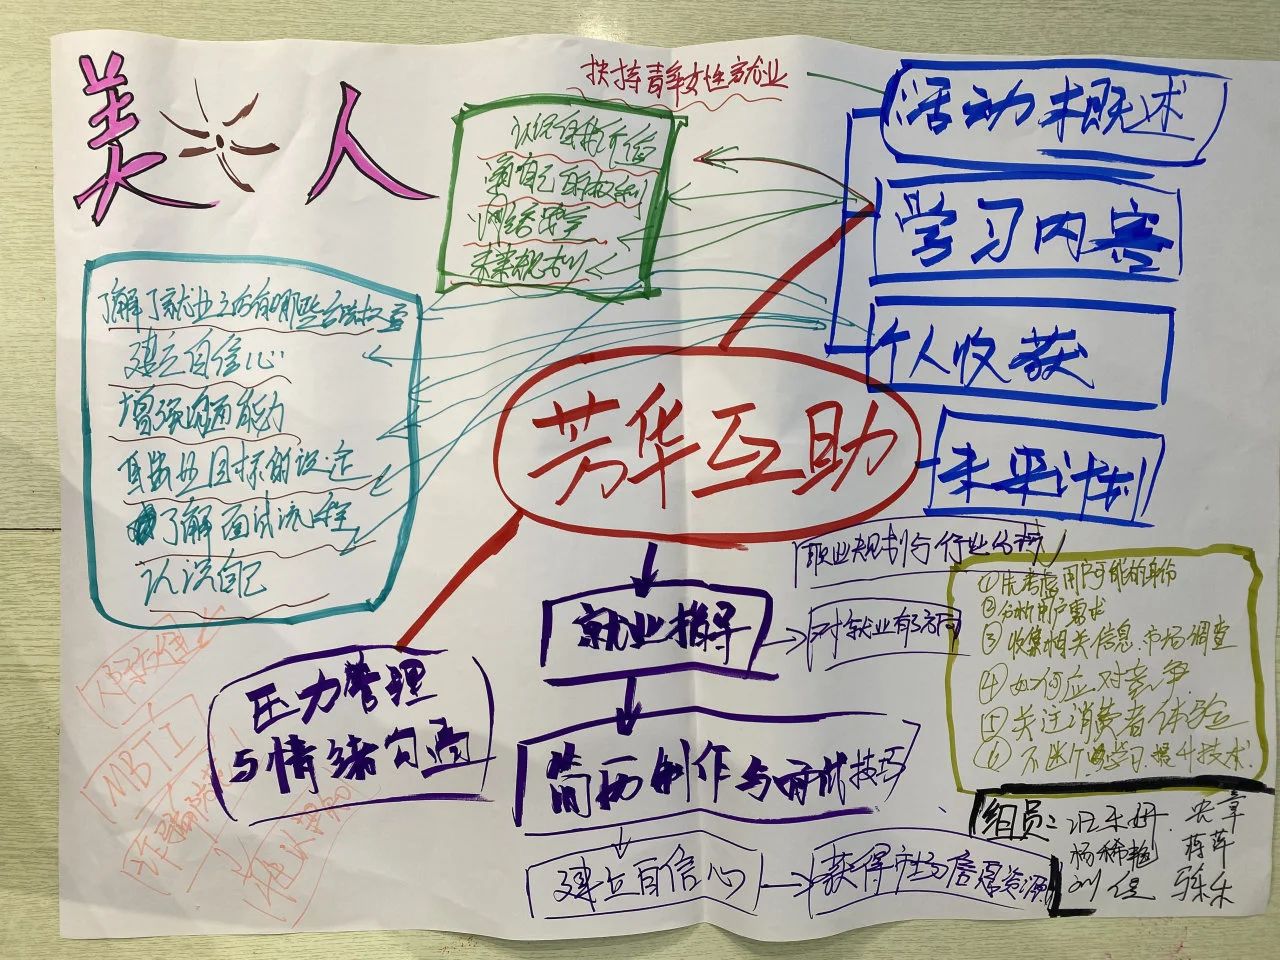 美人
扶持青年女性就业
活动概述
学习内容
个人收获
未来计划
认识自我价值
未来规划
了解了就业之后有哪些
建立自信心
增强沟通能力
目标的设定
了解面试流程
认识自己
芳华互助
职业规划与行业分析
就业指导
对就业有方向
压力管理
与情绪沟通
简历制作与面试技巧
建立自信心
获得市场信息资源
①先考虑用户可能的身份
②分析用户需求
③收集相关信息.市场调查
④如何应对竞争
⑤关注消费者体验
⑥不断学习提升技术.
MBTI
组员:
杨稀艳 蒋萍